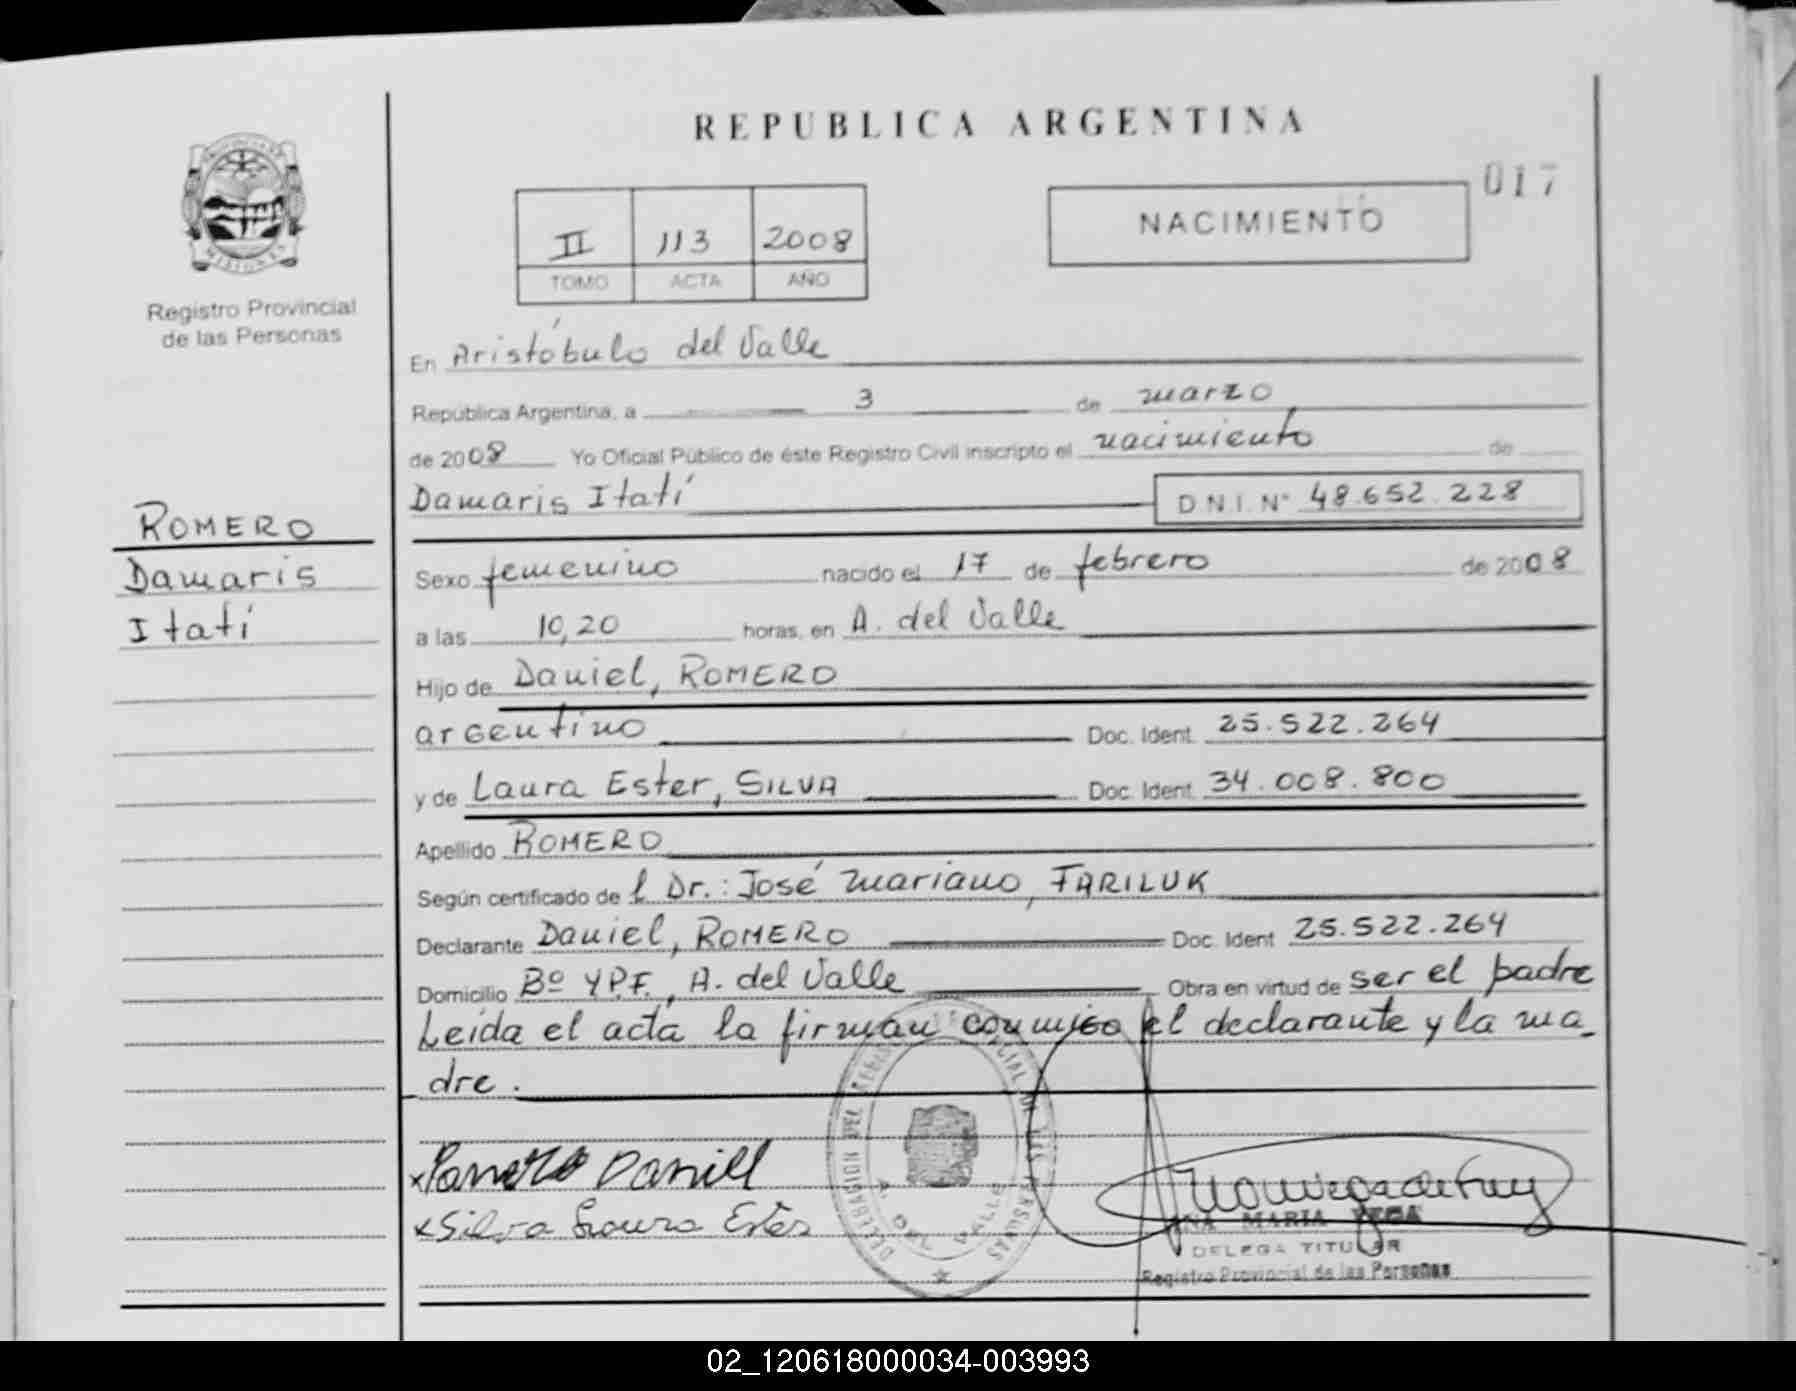 REPUBLICA ARGENTINA
017
II 113 2008
TOMO ACTA AÑO
NACIMIENTO
MISIONES
Registro Provincial
de las Personas
En Aristóbulo del Valle
República Argentina, a 3 de marzo
de 2008 Yo Oficial Público de éste Registro Civil inscripto el nacimiento de
Damaris Itatí D.N.I. Nº 48.652.228
ROMERO
Damaris
Itatí
Sexo femenino nacido el 17 de febrero de 2008
a las 10,20 horas, en A. del Valle
Hijo de Daniel, ROMERO
argentino Doc. Ident. 25.522.264
y de Laura Ester, SILVA Doc. Ident. 34.008.800
Apellido ROMERO
Según certificado de l Dr.: José Mariano, FARILUK
Declarante Daniel, ROMERO Doc. Ident 25.522.264
Domicilio Bº YPF., A. del Valle Obra en virtud de ser el padre
Leída el acta la firman conmigo el declarante y la ma_
dre.
x Romero Daniell
x Silva Laura Ester
DELEGACION DEL REGISTRO PROVINCIAL DE LAS PERSONAS
A. DEL VALLE
ANA MARIA VEGA
DELEGA TITULAR
Registro Provincial de las Personas
02_120618000034-003993